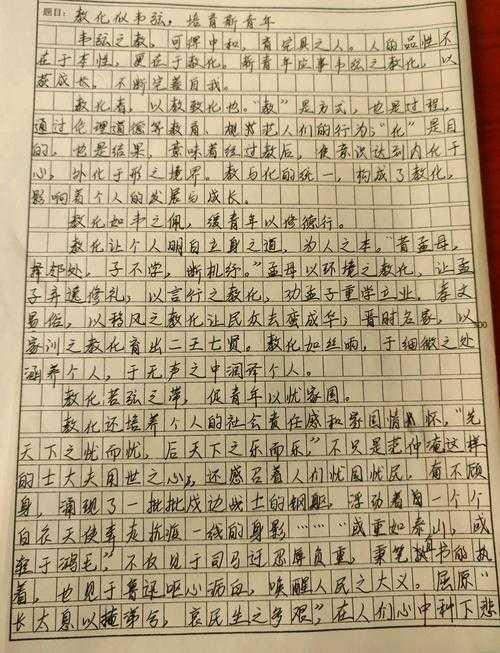 题目: 教化似韦弦，培育新青年
韦弦之教，可得中和，育完具之人。人的品性不
在于本性，更在于教化。新青年应事韦弦之教化，以
获成长，不断完善自我。
教化者，以教致化也。“教”是方式，也是过程，
通过伦理道德等教育、规范人们的行为；“化”是目
的，也是结果，意味着经过教后，使意识达到内化于
心，外化于形之境界。教与化的统一，构成了教化，
影响着个人的发展与成长。
教化如韦之佩，缓青年以修德行。
教化让个人明白立身之道，为人之本。“昔孟母，
择邻处，子不学，断机杼。”孟母以环境之教化，让孟
子弃逸修礼；以言行之教化，劝孟子重学立业。孝文
易俗，以移风之教化让民众去蛮成华；晋时名家，以
家训之教化育出二王七贤。教化如丝响，于细微之处
涵养个人，于无声之中润泽个人。
教化若弦之带，促青年以忧家国。
教化还培养个人的社会责任感和家国情怀，“先
天下之忧而忧，后天下之乐而乐，”不只是范仲淹这样
的士大夫用世之心，还感召着人们忧国忧民，奋不顾
身，涌现了一批批戍边战士的钢躯，浮动着一个个
白衣天使奔走抗疫一线的身影……“或重如泰山，或
轻于鸿毛”，不仅见于司马迁忍辱负重，秉笔直书的执
着，也见于鲁迅呕心沥血，唤醒人民之大义。屈原“
长太息以掩涕兮，哀民生之多艰”，在人们心中种下悲